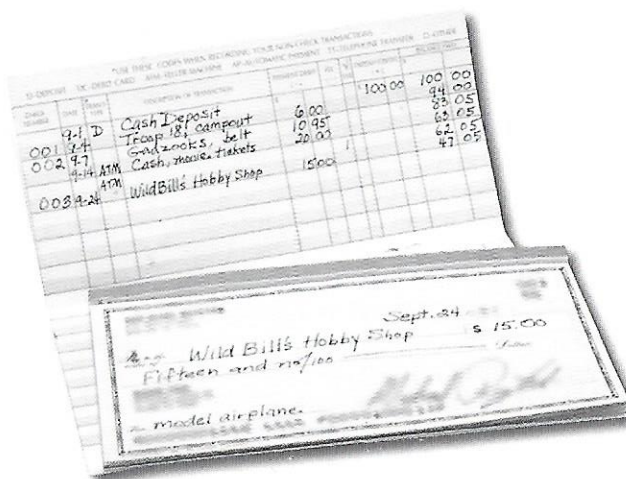 *USE THESE CODES WHEN RECORDING YOUR NON-CHECK TRANSACTIONS
D-DEPOSIT DC-DEBIT CARD ATM-TELLER MACHINE AP-AUTOMATIC PAYMENT TT-TELEPHONE TRANSFER O-OTHER
NUMBER DATE DESCRIPTION OF TRANSACTION
9-1 D Cash Deposit 100 00 100 00
001 9-4 Troop 181 campout 6 00 94 00
002 9-7 Gadzooks, belt 10 95 83 05
9-14 ATM Cash, movie tickets 20 00 63 05
ATM 1 62 05
003 9-24 Wild Bill's Hobby Shop 15 00 47 05
Sept. 24
Wild Bill's Hobby Shop $ 15.00
Fifteen and no/100
model airplane